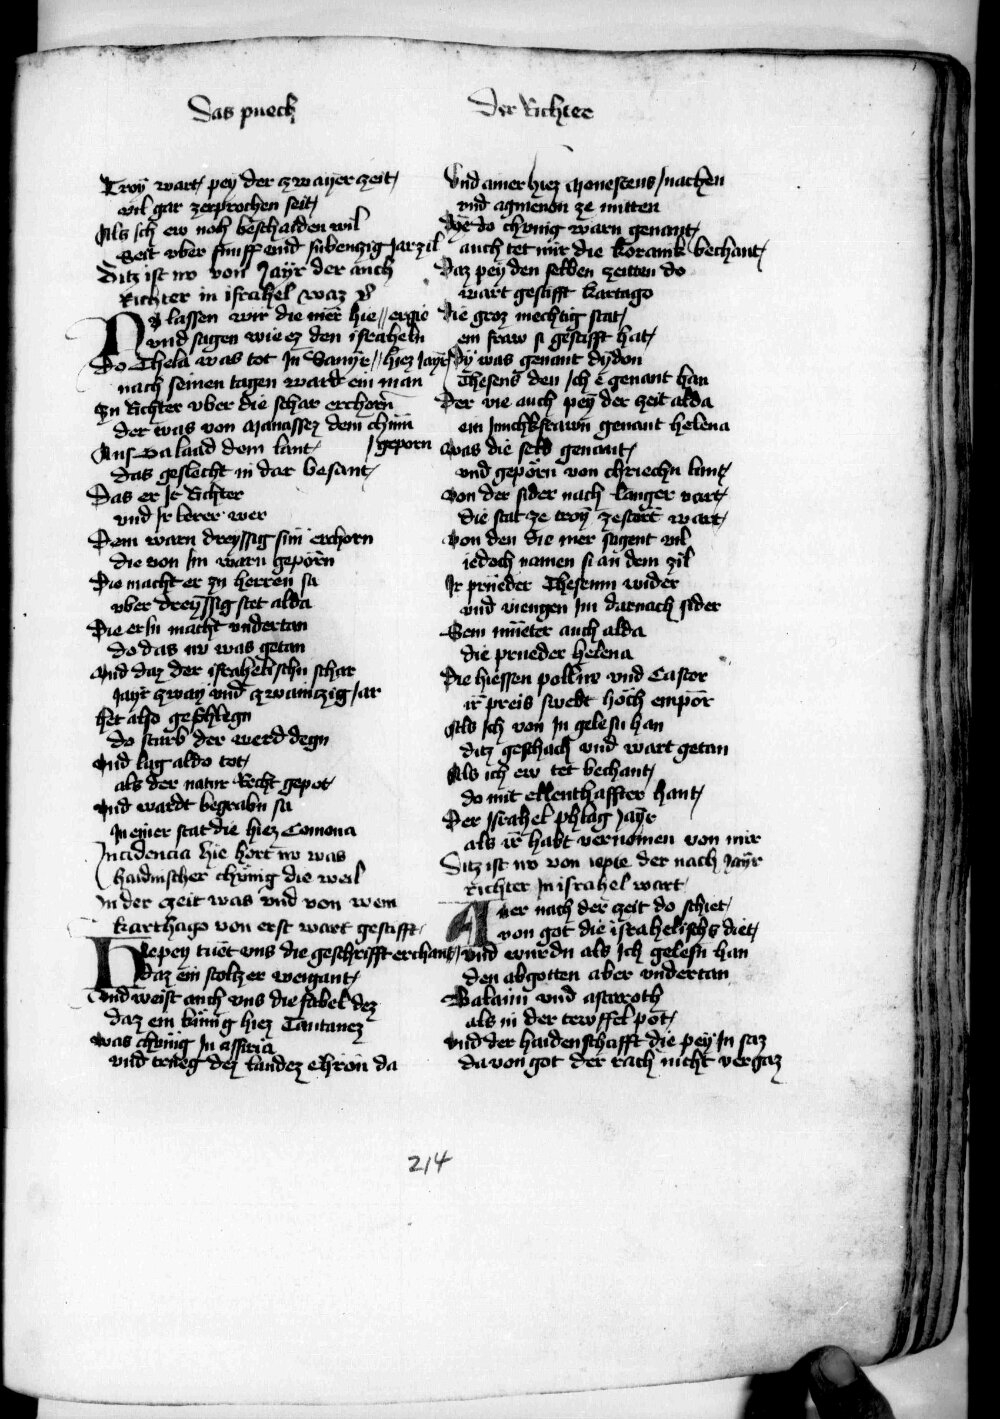 Das puech
Der Richter
Troÿ wart pey der zwayer zeit
vil gar zerprochen seit
Als ich ew noch beschaiden wil
Seit vber funff vnd sibenczig jar zil
Ditz ist nv von Jayr der auch
Richter in israhel waz
Nv lassen wir die mer hie // ergie
vnd sagen wie ez den israheln
Do Thela was tot Jn Samyr // hiez Jayr
nach seinen tagen wardt ein man
Zu Richter vber die schar erchorn
der was von Manassez dem chunn
Aus Galaad dem lant / geporn
das geslecht in dar besant
Das er Jr Richter
vnd Jr lerer wer
Dem warn dreyssig sun erchorn
die von Jm warn geporn
Die macht er zu herren sa
vber dreyssig stet alda
Die er Jn macht vndertan
do das nv was getan
Vnd daz der israhelischn schar
Jayr zway vnd zwainczig Jar
het also gephlegn
do starb der werd degn
Vnd lag aldo tot
als der natur Recht gepot
Vnd wardt begrabn sa
Jn einer stat die hiez Comona
Jncidencia hie hort nv was
haidnischer chunig die weil
Jn der czeit was vnd von wem
Karthago von erst wart gestifft
Hiepey tuet vns die geschrifft erchant
daz ein stolczer weygant
Vnd weist auch vns die fabel dez
daz ein kunig hiez Tantanez
Was chunig Jn assiria
vnd trueg dez landez chron da
Vnd ainer hiez Monesteus / nachen
vnd agmenon ze mitten
Dye do chunig warn genant
auch tet mir die koranik bechant
Daz pey den selben zeitten do
wart gestifft kartago
Die groz mechtig stat
ein fraw si gestifft hat
Dy was genant dydon
Theseus den Jch e genant han
Der vie auch pey der zeit alda
ein Junchkfrawn genant helena
Was die selb genant
vnd geporn von chriechn lant
Von der sider nach langer vart
die stat ze troy zestort wart
Von den die mer sagent vil
iedoch namen si an dem zil
Jr prueder Thesenm wider
vnd viengen Jm darnach sider
Sein mueter auch alda
die prueder helena
Die hiessen pollux vnd Castor
ir preis swebt hoch empor
Als Jch von Jn gelesn han
ditz geschach vnd wart getan
Als ich ew tet bechant
do mit ellenthaffter hant
Der Jsrahel phlag Jayr
als ir habt vernomen von mir
Ditz ist nv von iepte der nach Jayr
Richter Jn israhel wart
Aver nach der zeit do schiet
von got die israhelischs diet
Vnd wurdn als Jch gelesn han
den abgotten aber vndertan
Balaim vnd astaroth
als in der tewffel pot
Vnd der haidenschafft die pey Jn saz
davon got der rach nicht vergaz
214